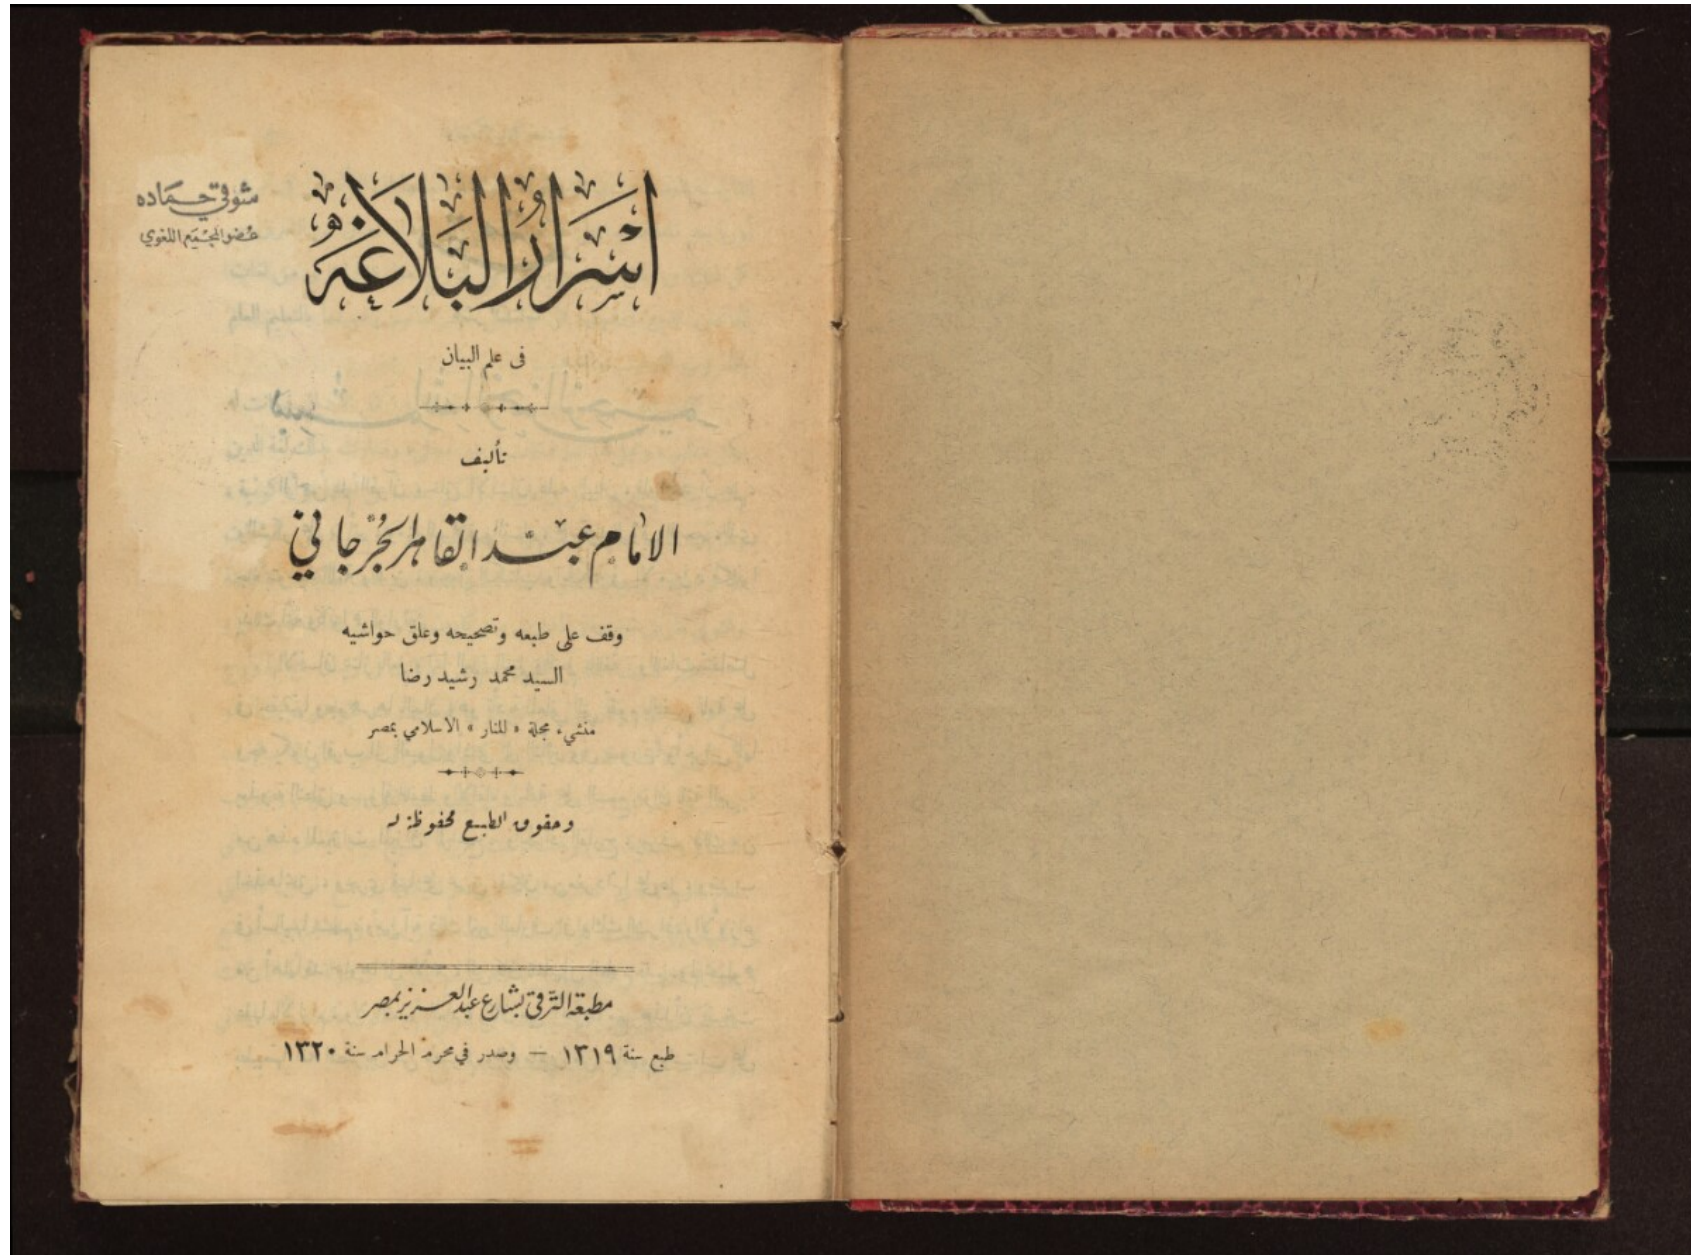 شوقي حماده
عضو المجمع اللغوي
أَسْرَارُ البَلَاغَة
فى علم البيان
تأليف
الامام عبد القاهر الجُرجاني
وقف على طبعه وتصحيحه وعلق حواشيه
السيد محمد رشيد رضا
منشيء مجلة « المنار » الاسلامي بمصر
وحقوق الطبع محفوظة له
مطبعة الترقي بشارع عبد العزيز بمصر
طبع سنة ١٣١٩ – وصدر في محرم الحرام سنة ١٣٢٠